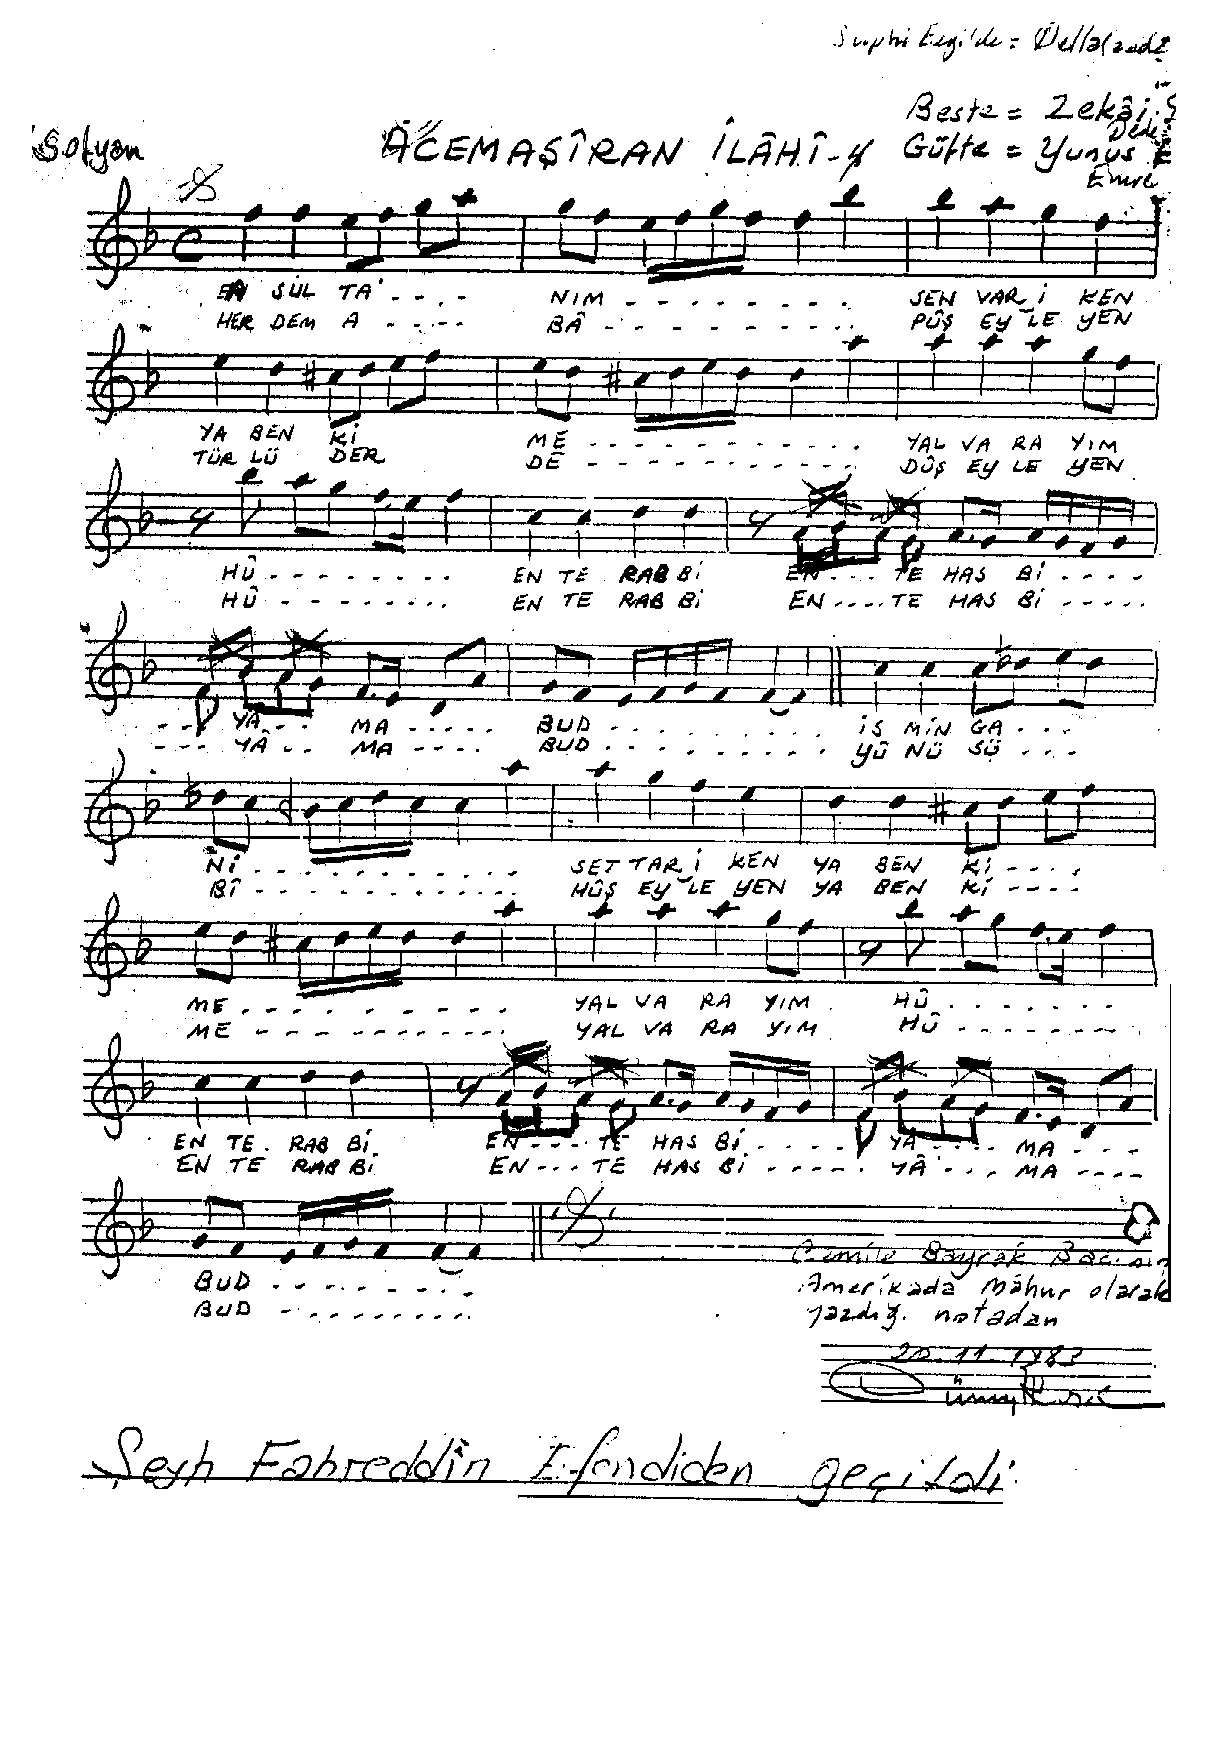 Suphi Ezgi'de = Dellalzade
Beste = Zekâi
Dede
Sofyan ACEMAŞÎRAN İLÂHÎ-4 Güfte = Yunus E
Emre
EY SUL TA - - - - NIM - - - - - - - - SEN VAR İ KEN
HER DEM A - - - - - BÂ - - - - - - - - - PÛŞ EY LE YEN
YA BEN Kİ ME - - - - - - - - - - YAL VA RA YIM
TÜR LÜ DER DE - - - - - - - - - - DÛŞ EY LE YEN
HÛ - - - - - - - - EN TE RAB Bİ EN - - - TE HAS Bİ - - - -
HÛ - - - - - - - - EN TE RAB Bİ EN - - - - TE HAS Bİ - - - - -
- - - YA - - - MA - - - - - BUD - - - - - - - - - İS MİN GA - - -
- - - YÂ - - MA - - - - BUD - - - - - - - - - YÛ NÜ SÜ - - -
Nİ - - - - - - - - - - SET TAR İ KEN YA BEN Kİ - - - -
BÎ - - - - - - - - - - HÛŞ EY LE YEN YA BEN Kİ - - - -
ME - - - - - - - - - - YAL VA RA YIM HÛ - - - - - - -
ME - - - - - - - - - - YAL VA RA YIM HÛ - - - - - - - -
EN TE RAB Bİ EN - - - TE HAS Bİ - - - - - YA - - - - MA - - - -
EN TE RAB Bİ EN - - - TE HAS Bİ - - - - - - YÂ - - - MA - - - -
BUD - - - - - - - -
BUD - - - - - - - -
Cemile Bayrak Bacının
Amerikada Mâhur olarak
yazdığı notadan
20.11.1983
Şeyh Fahreddîn Efendiden geçildi.